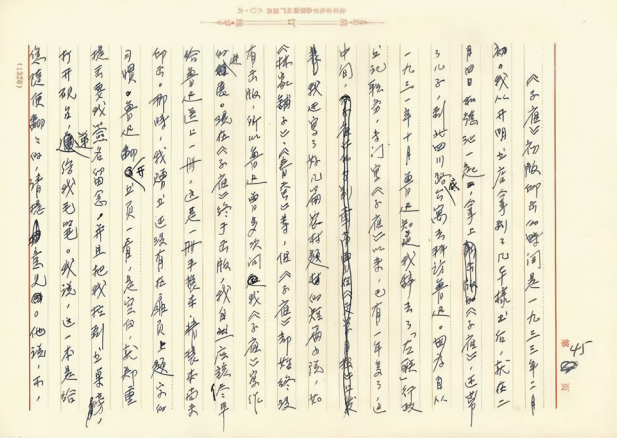 《子夜》初版印出的时间是一九三三年二月
初。我从开明书店拿到了几本样书后，就在二
月四日和德沚一起，拿上《子夜》，还带
了儿子，到北四川路底公寓去拜访鲁迅。因为自从
一九三一年十月鲁迅知道我辞去了「左联」行政
书记职务，专门写《子夜》以来，已有一年多了，这
中间，
我还写了好几篇农村题材的短篇小说，如
《林家铺子》、《春蚕》等，但《子夜》却始终没
有出版，所以鲁迅曾多次问我《子夜》写作
的进展。现在《子夜》终于出版，我自然应该尽早
给鲁迅送上一册，这是一册平装本，精装本尚未
印出。那时，我赠书还没有在扉页上题字的
习惯。鲁迅翻开书页一看，是空白，就郑重
提出要我签名留念，并且把我拉到书桌旁，
打开砚台，递给我毛笔。我说，这一本是给
您随便翻翻的，请提意见。他说，不，
第 45 页
(1326)